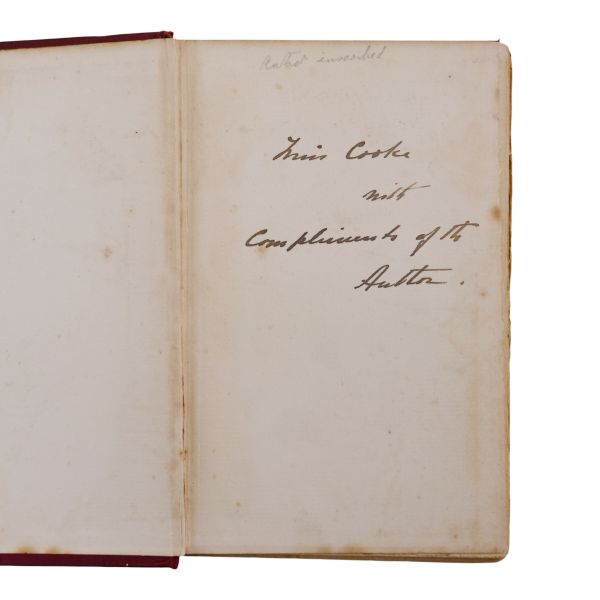 Author inscribed
Miss Cooke
with
Compliments of the
Author.